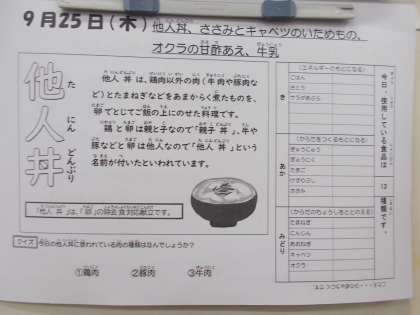 9月25日(木)他人丼、ささみとキャベツのいためもの、
オクラの甘酢あえ、牛乳
他人丼
たにんどんぶり
他人丼は、鶏肉以外の肉(牛肉や豚肉な
ど)とたまねぎなどをあまからく煮たものを、
卵でとじてご飯の上にのせた料理です。
鶏と卵は親と子なので「親子丼」、牛や
豚などと卵は他人なので「他人丼」という
名前が付いたといわれています。
「他人丼」は、「卵」の除去食対応献立です。
クイズ 今日の他人丼に使われている肉の種類はなんでしょうか?
①鶏肉 ②豚肉 ③牛肉
今日、使用している食品は 13 種類です。
き
(エネルギーのもとになる)
ごはん
さとう
あか
(からだをつくるもとになる)
ぎゅうにゅう
ぎゅうにく
たまご
ささみ
みどり
(からだのちょうしをととのえる)
たまねぎ
にんじん
キャベツ
オクラ